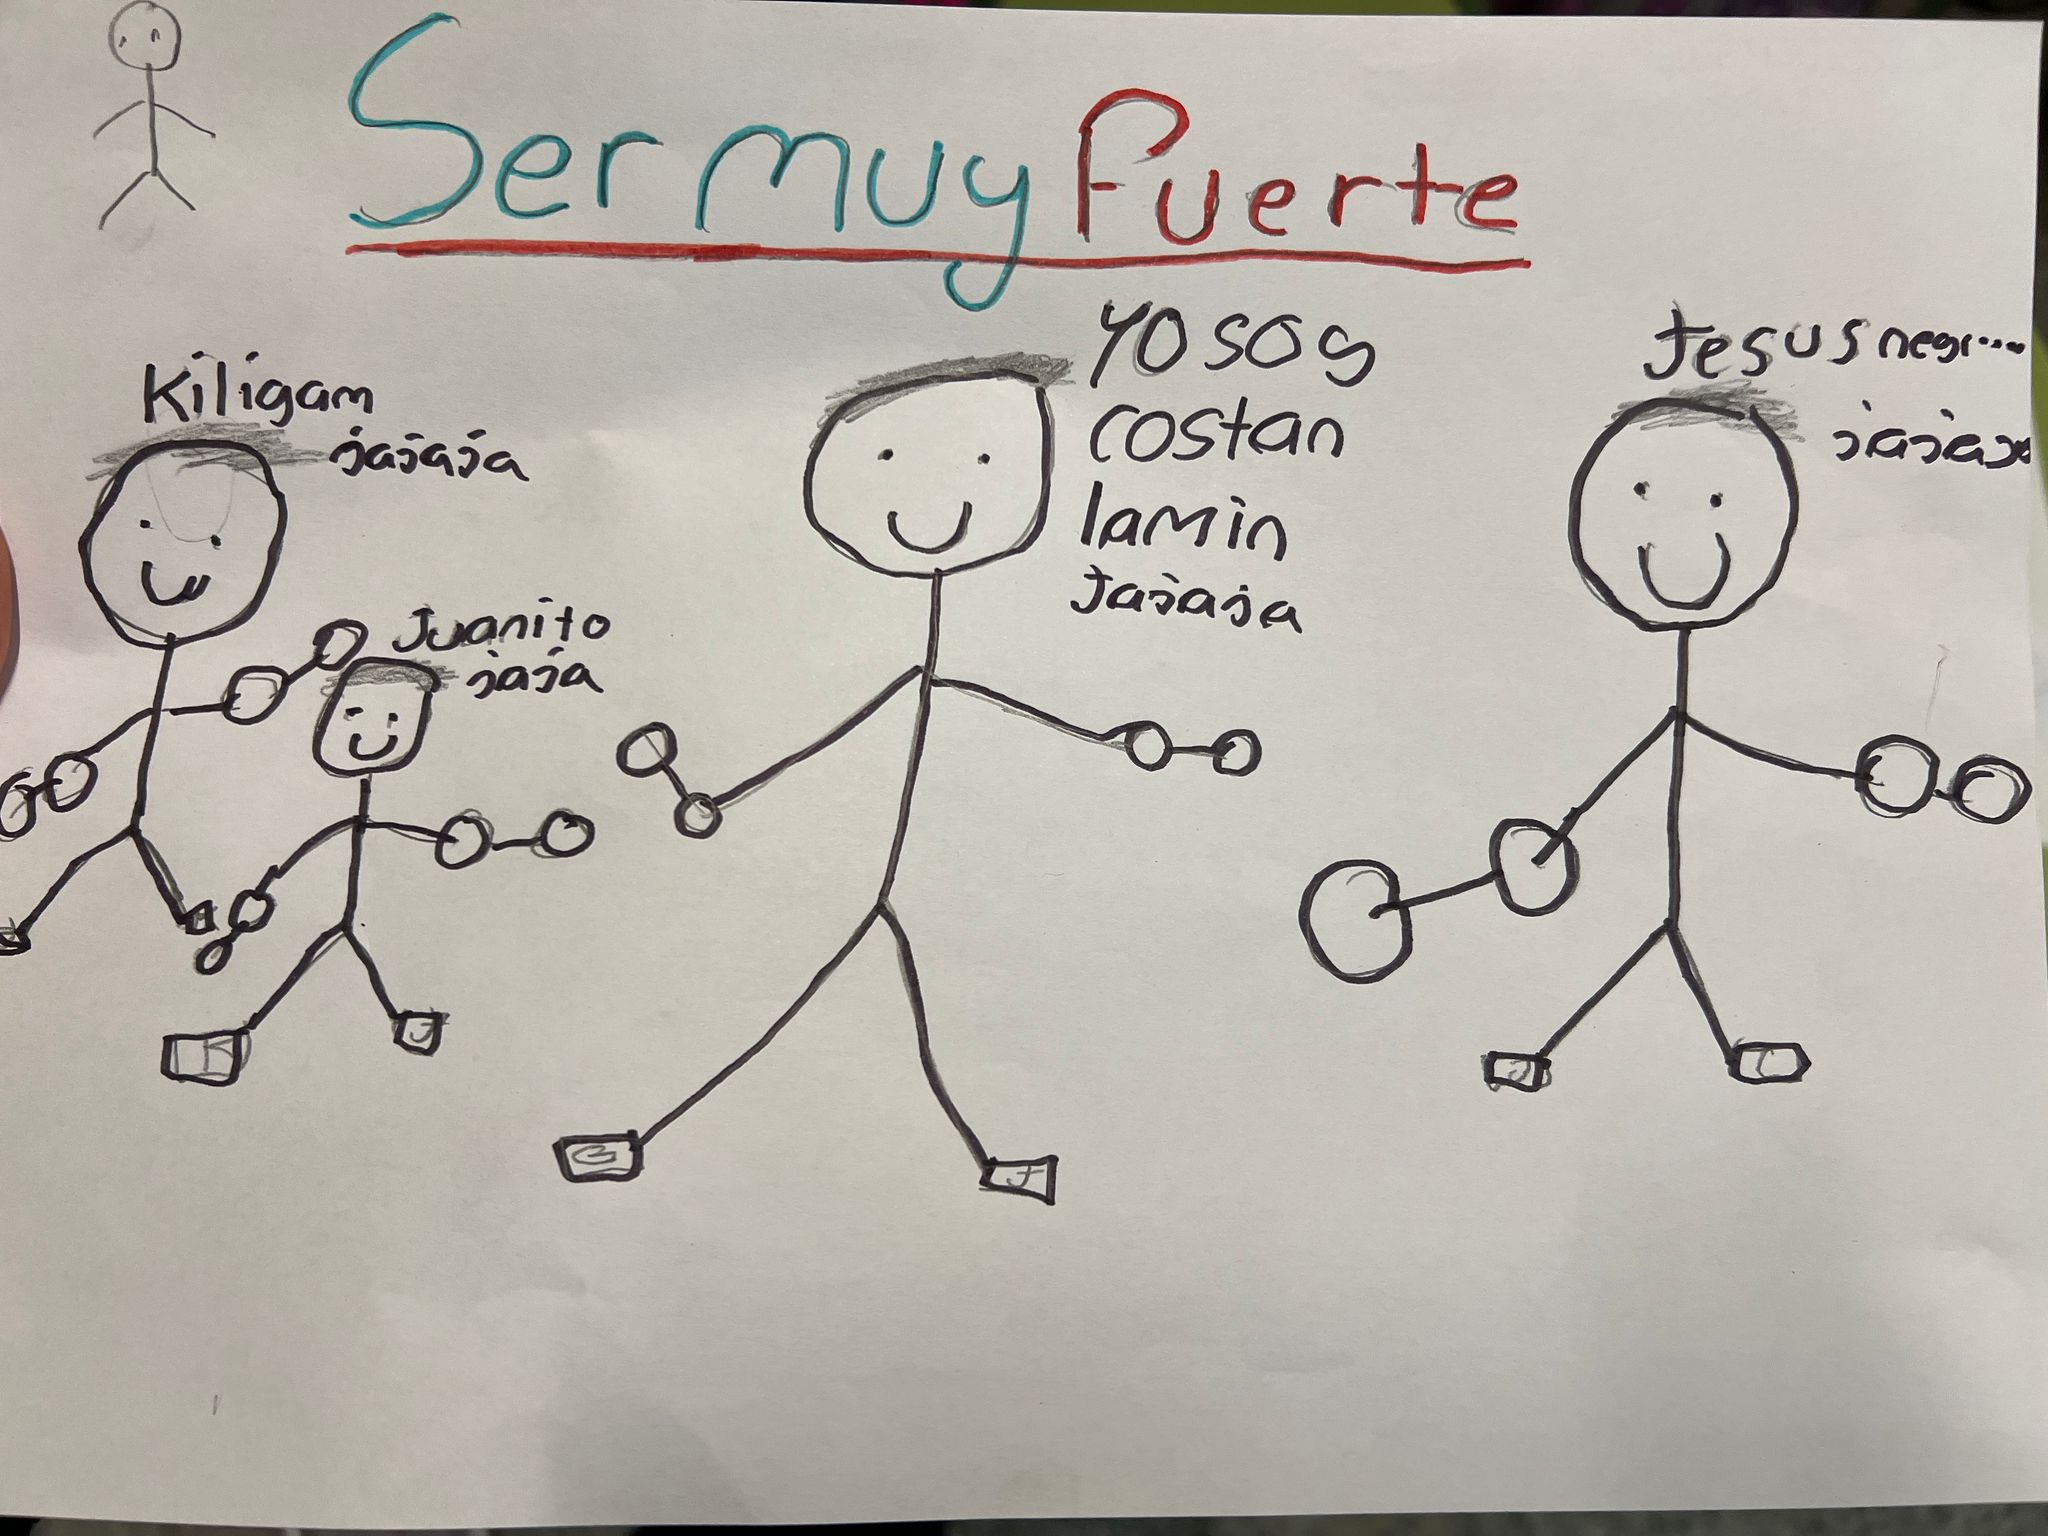 Ser muy fuerte
Kiligam
jajaja
Juanito
jaja
Yo soy
costan
lamin
Jajaja
Jesus negr....
jajaja
G
J